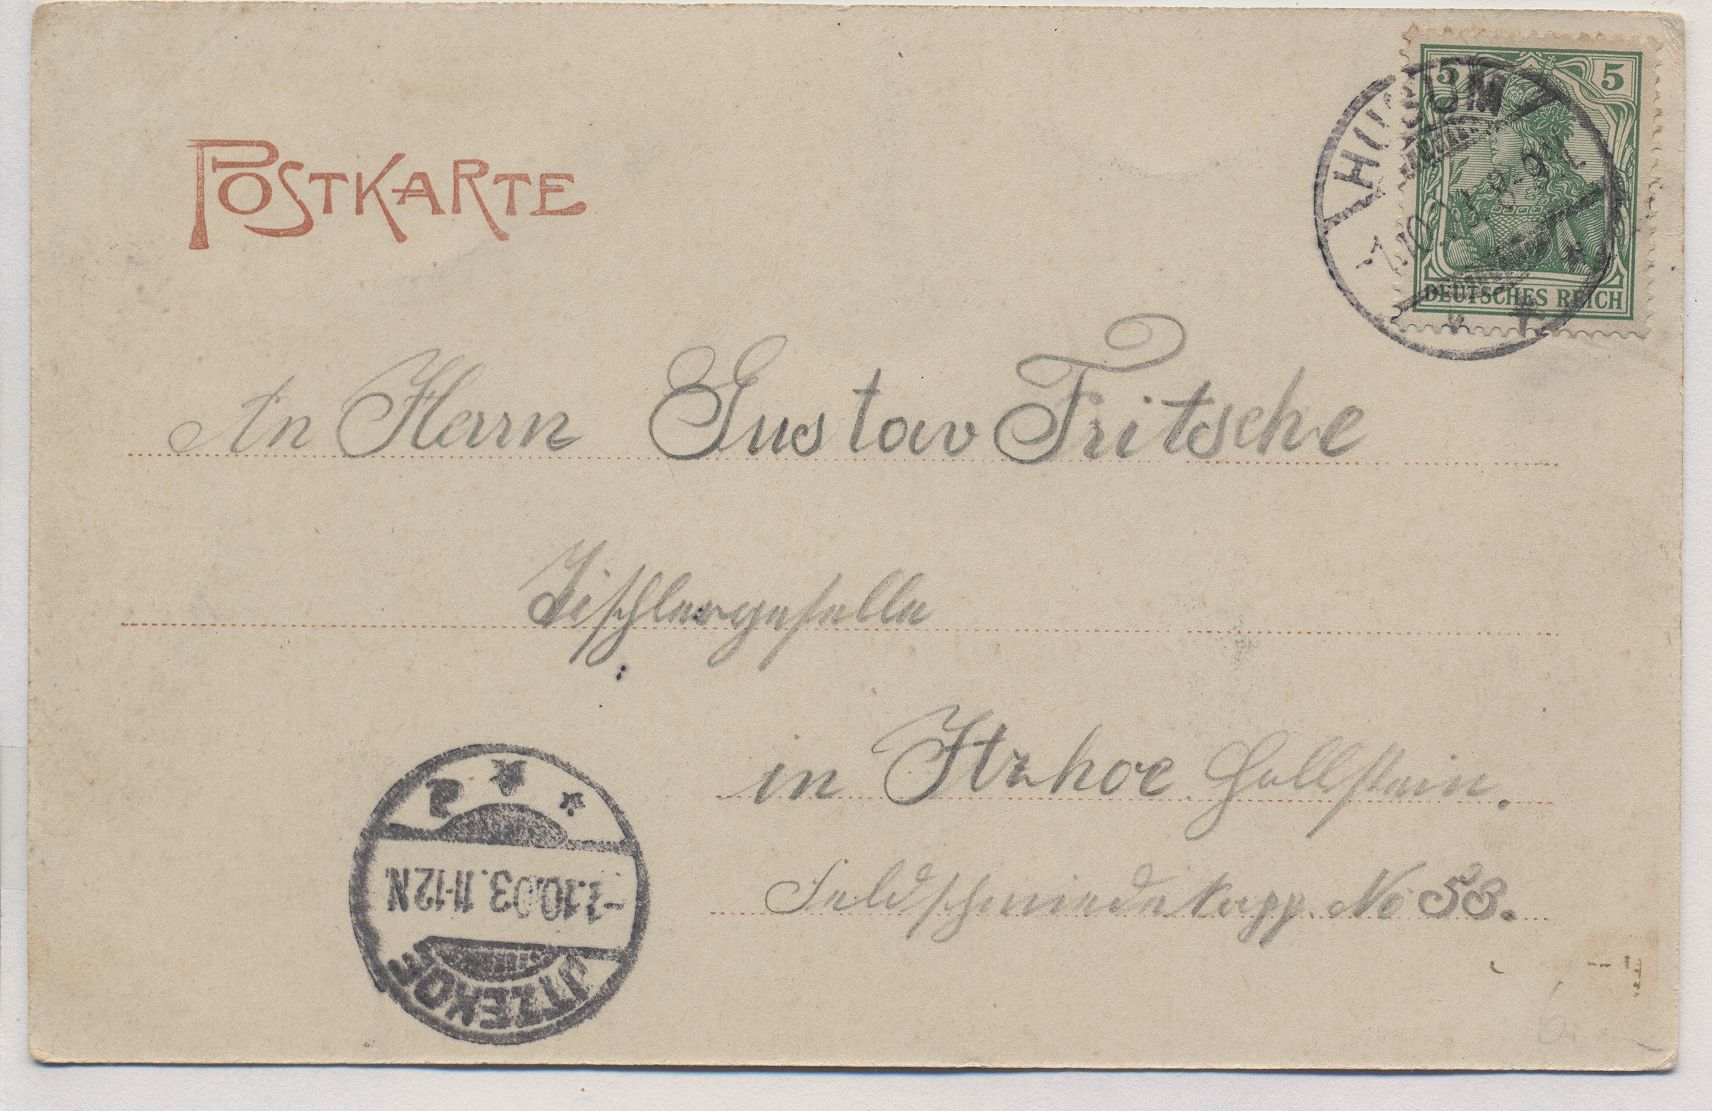 POSTKARTE
5 5
HUSUM
8-9V.
DEUTSCHES REICH
An Herrn Gustav Fritsche
Tischlergeselle
in Itzhoe Hollstein.
Feldschmiedekapp. No 53.
ITZEHOE
-7.10.03. 11-12N.
2